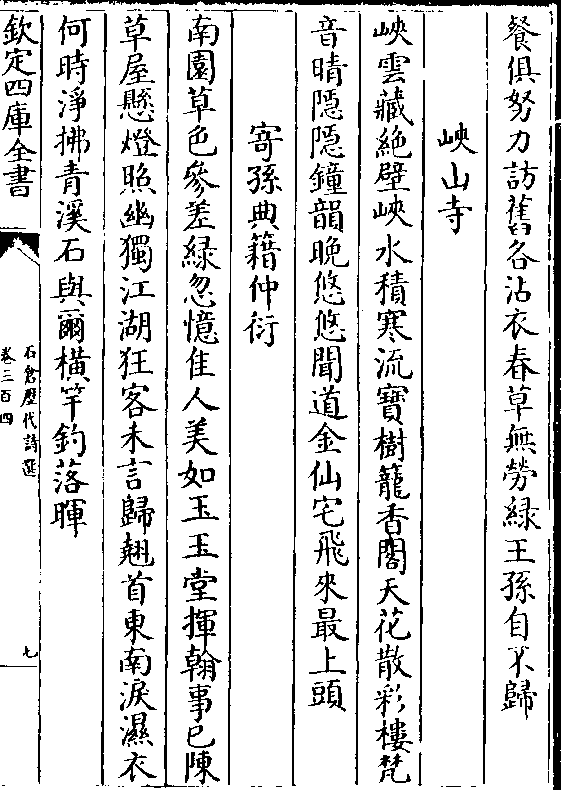 餐俱努力訪舊各沾衣春草無勞緑王孫自不歸
峽山寺
峽雲藏絶壁峽水積寒流寶樹籠香閣天花散彩樓梵
音晴隠隠鐘韻晚悠悠聞道金仙宅飛來最上頭
寄孫典籍仲衍
南園草色參差緑忽憶佳人美如玉玉堂揮翰事已陳
草屋懸燈照幽獨江湖狂客未言歸翹首東南淚濕衣
何時淨拂青溪石與爾橫竿釣落暉
欽定四庫全書
石倉歷代詩選
卷三百四
七